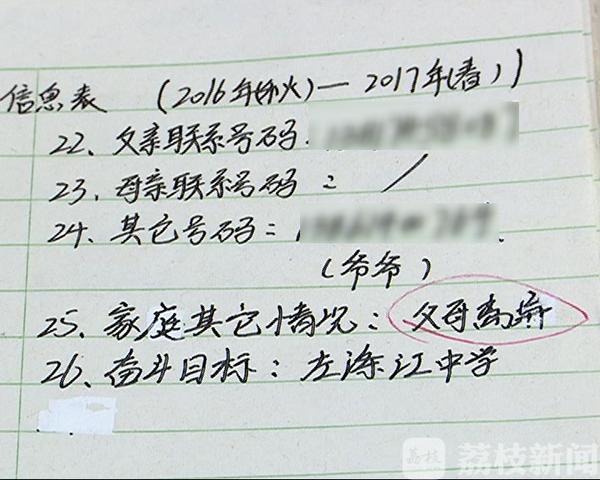 信息表 (2016年(秋)—2017年(春))
22、父亲联系号码:
23、母亲联系号码: /
24、其它号码:
(爷爷)
25、家庭其它情况: 父母离异
26、奋斗目标: 中学
荔枝 荔枝新闻